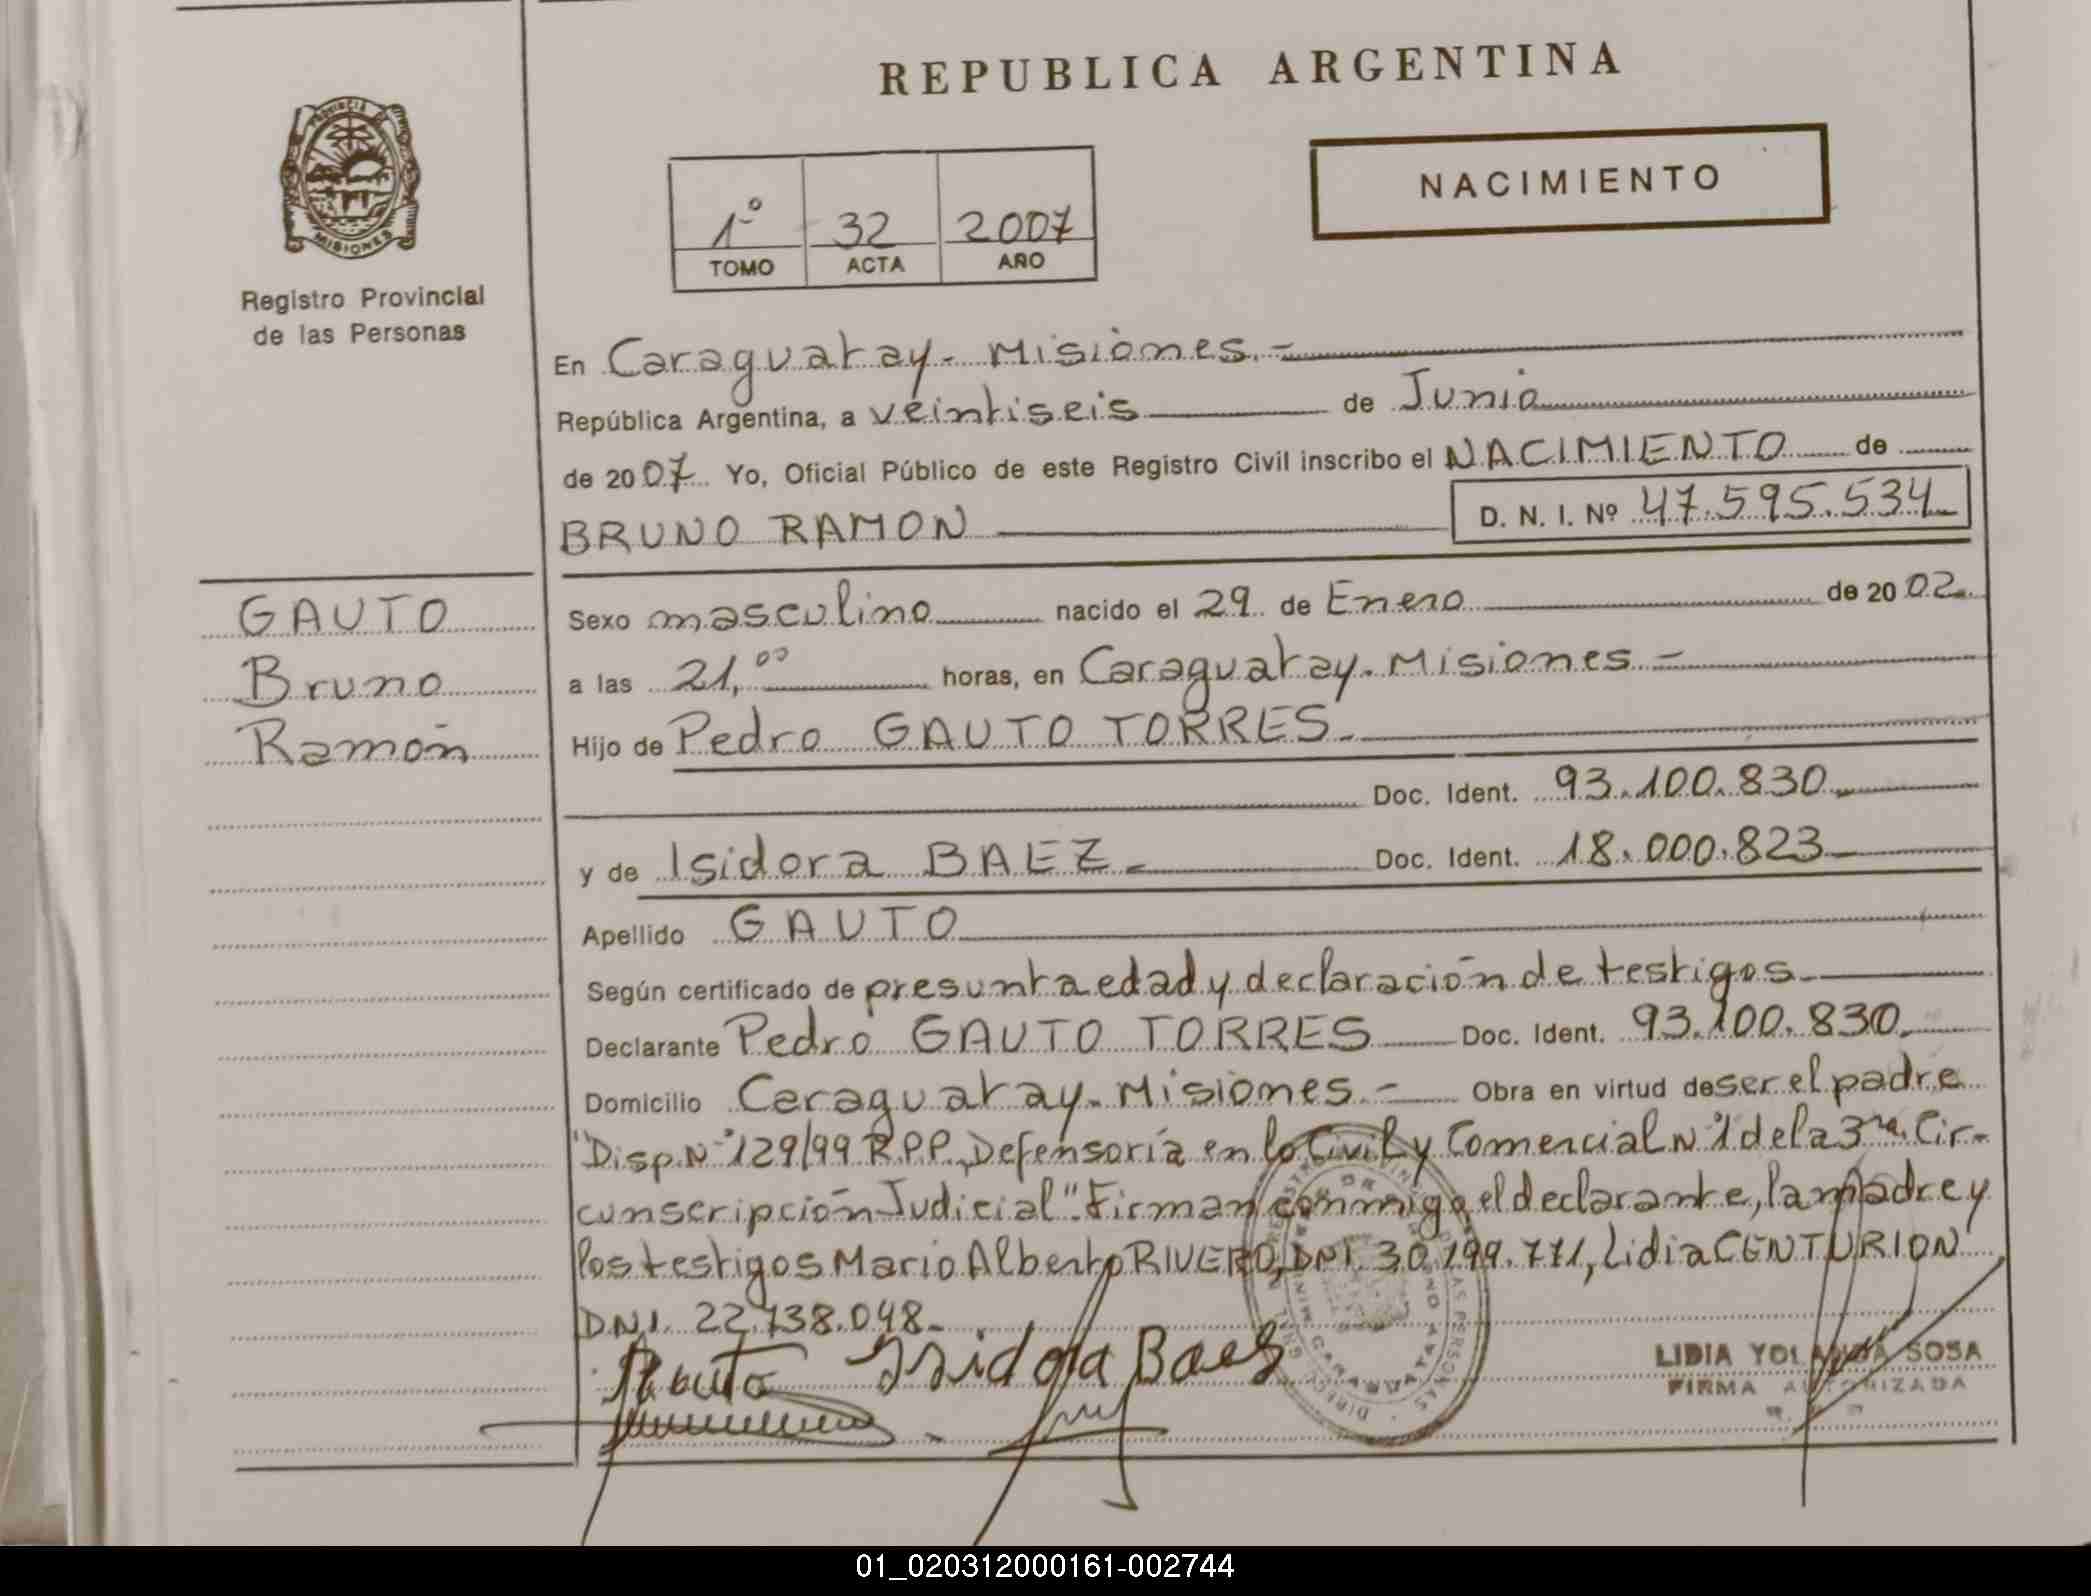 REPUBLICA ARGENTINA
PROVINCIA DE
MISIONES
Registro Provincial
de las Personas
NACIMIENTO
1º 32 2007
TOMO ACTA AÑO
En Caraguatay - Misiones.-
República Argentina, a veintiseis de Junio
de 2007 Yo, Oficial Público de este Registro Civil inscribo el NACIMIENTO de
BRUNO RAMON D. N. I. Nº 47.595.534
GAUTO
Bruno
Ramón
Sexo masculino nacido el 29 de Enero de 2002.
a las 21,00 horas, en Caraguatay - Misiones -
Hijo de Pedro GAUTO TORRES.
Doc. Ident. 93.100.830
y de Isidora BAEZ - Doc. Ident. 18.000.823
Apellido GAUTO
Según certificado de presunta edad y declaración de testigos
Declarante Pedro GAUTO TORRES Doc. Ident. 93.100.830.
Domicilio Caraguatay - Misiones.- Obra en virtud de ser el padre
"Disp. Nº 129/99 R.P.P., Defensoría en lo Civil y Comercial Nº 1 de la 3ra. Cir-
cunscripción Judicial". Firman conmigo el declarante, la madre y
los testigos Mario Alberto RIVERO, DNI. 30.199.771, Lidia CENTURION
DNI. 22.738.048.-
Gauto Isidora Baez
LIDIA YOLANDA SOSA
FIRMA AUTORIZADA
01_020312000161-002744